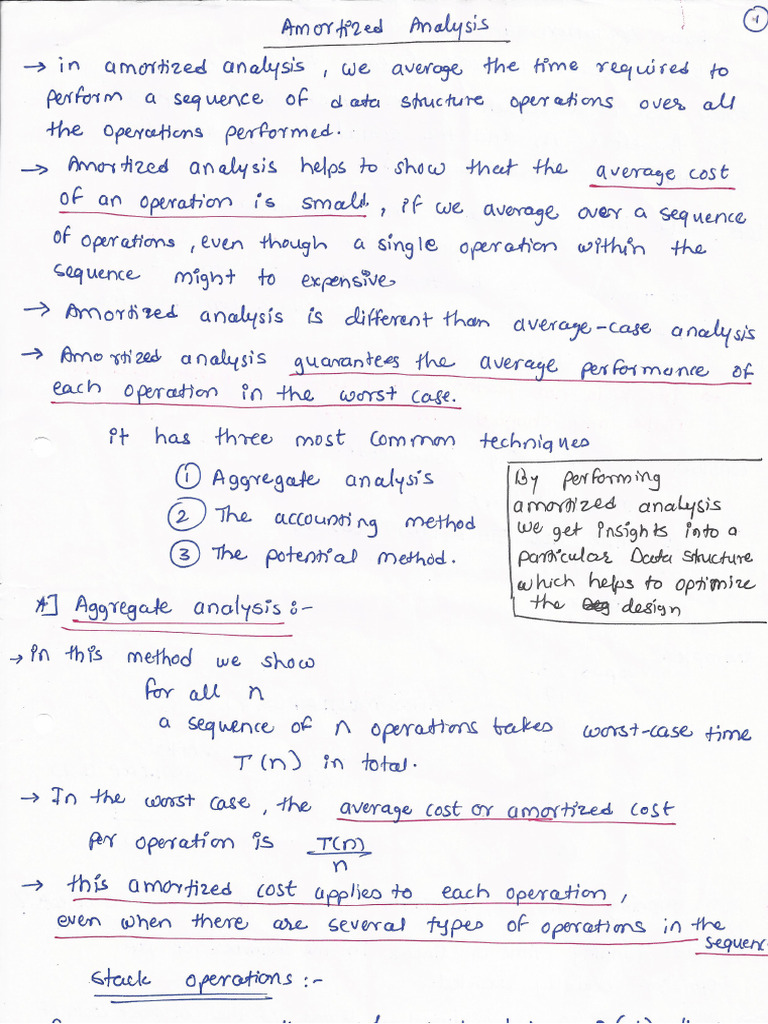 Amortized Analysis
1
→ in amortized analysis, we average the time required to
perform a sequence of data structure operations over all
the operations performed.
→ Amortized analysis helps to show that the average cost
of an operation is small, if we average over a sequence
of operations, even though a single operation within the
sequence might to expensive
→ Amortized analysis is different than average-case analysis
→ Amortized analysis guarantees the average performance of
each operation in the worst case.
it has three most common techniques
① Aggregate analysis
② The accounting method
③ The potential method.
By performing
amortized analysis
we get insights into a
particular Data structure
which helps to optimize
the design
*] Aggregate analysis :-
→ in this method we show
for all n
a sequence of n operations takes worst-case time
T(n) in total.
→ In the worst case, the average cost or amortized cost
per operation is T(n)/n
→ this amortized cost applies to each operation,
even when there are several types of operations in the
sequenc
Stack operations :-